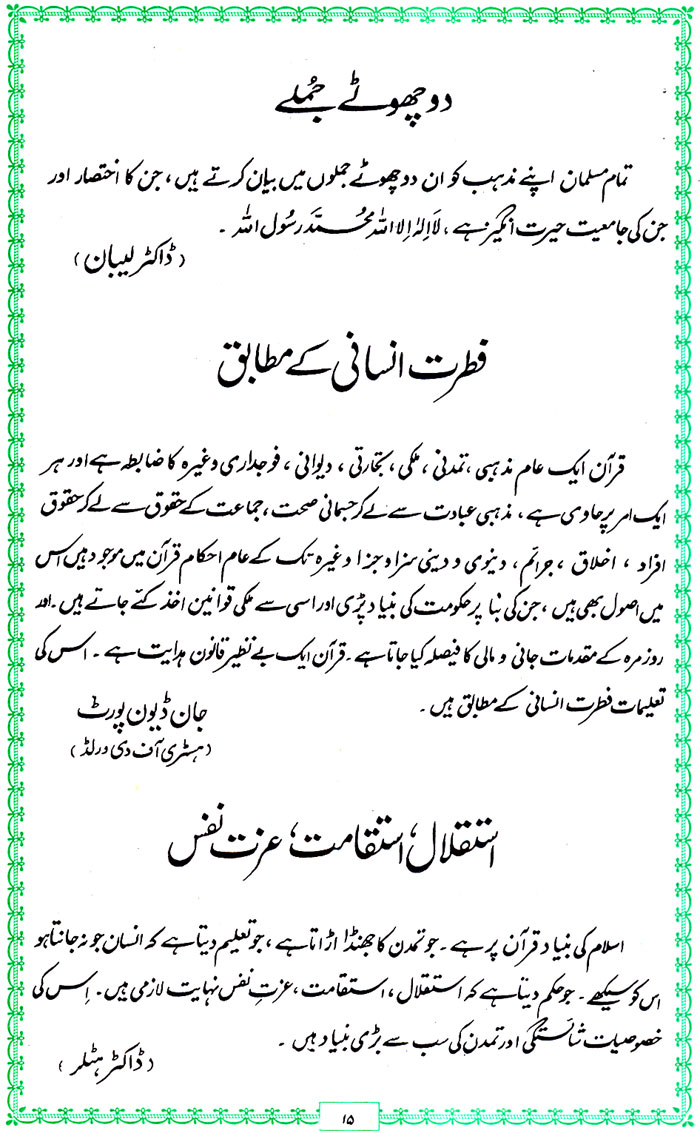 دو چھوٹے جُملے
تمام مسلمان اپنے مذہب کو ان دو چھوٹے جملوں میں بیان کرتے ہیں، جن کا اختصار اور
جن کی جامعیت حیرت انگیز ہے، لَا اِلٰہَ اِلا اللہ محمّد رسُول اللہ ۔
(ڈاکٹر لیبان)
فطرت انسانی کے مطابق
قرآن ایک عام مذہبی، تمدنی، ملکی، تجارتی، دیوانی، فوجداری وغیرہ کا ضابطہ ہے اور ہر
ایک امر پر حاوی ہے، مذہبی عبادت سے لے کر جسمانی صحت، جماعت کے حقوق سے لے کر حقوق
افراد، اخلاق، جرائم، دینوی و دینی سزا و جزا وغیرہ تک کے عام احکام قرآن میں موجود ہیں اس
میں اصول بھی ہیں، جن کی بنا پر حکومت کی بنیاد پڑی اور اسی سے ملکی قوانین اخذ کئے جاتے ہیں۔ اور
روزمرہ کے مقدمات جانی و مالی کا فیصلہ کیا جاتا ہے۔ قرآن ایک بے نظیر قانون ہدایت ہے۔ اس کی
تعلیمات فطرت انسانی کے مطابق ہیں۔
جان ڈیون پورٹ
(ہسٹری آف دی ورلڈ)
استقلال، استقامت، عزت نفس
اسلام کی بنیاد قرآن پر ہے۔ جو تمدن کا جھنڈا اڑاتا ہے، جو تعلیم دیتا ہے کہ انسان جو نہ جانتا ہو
اس کو سیکھے۔ جو حکم دیتا ہے کہ استقلال، استقامت، عزتِ نفس نہایت لازمی ہیں۔ اِس کی
خصوصیات شائستگی اور تمدن کی سب سے بڑی بنیاد ہیں۔
(ڈاکٹر ہٹلر)
۱۵